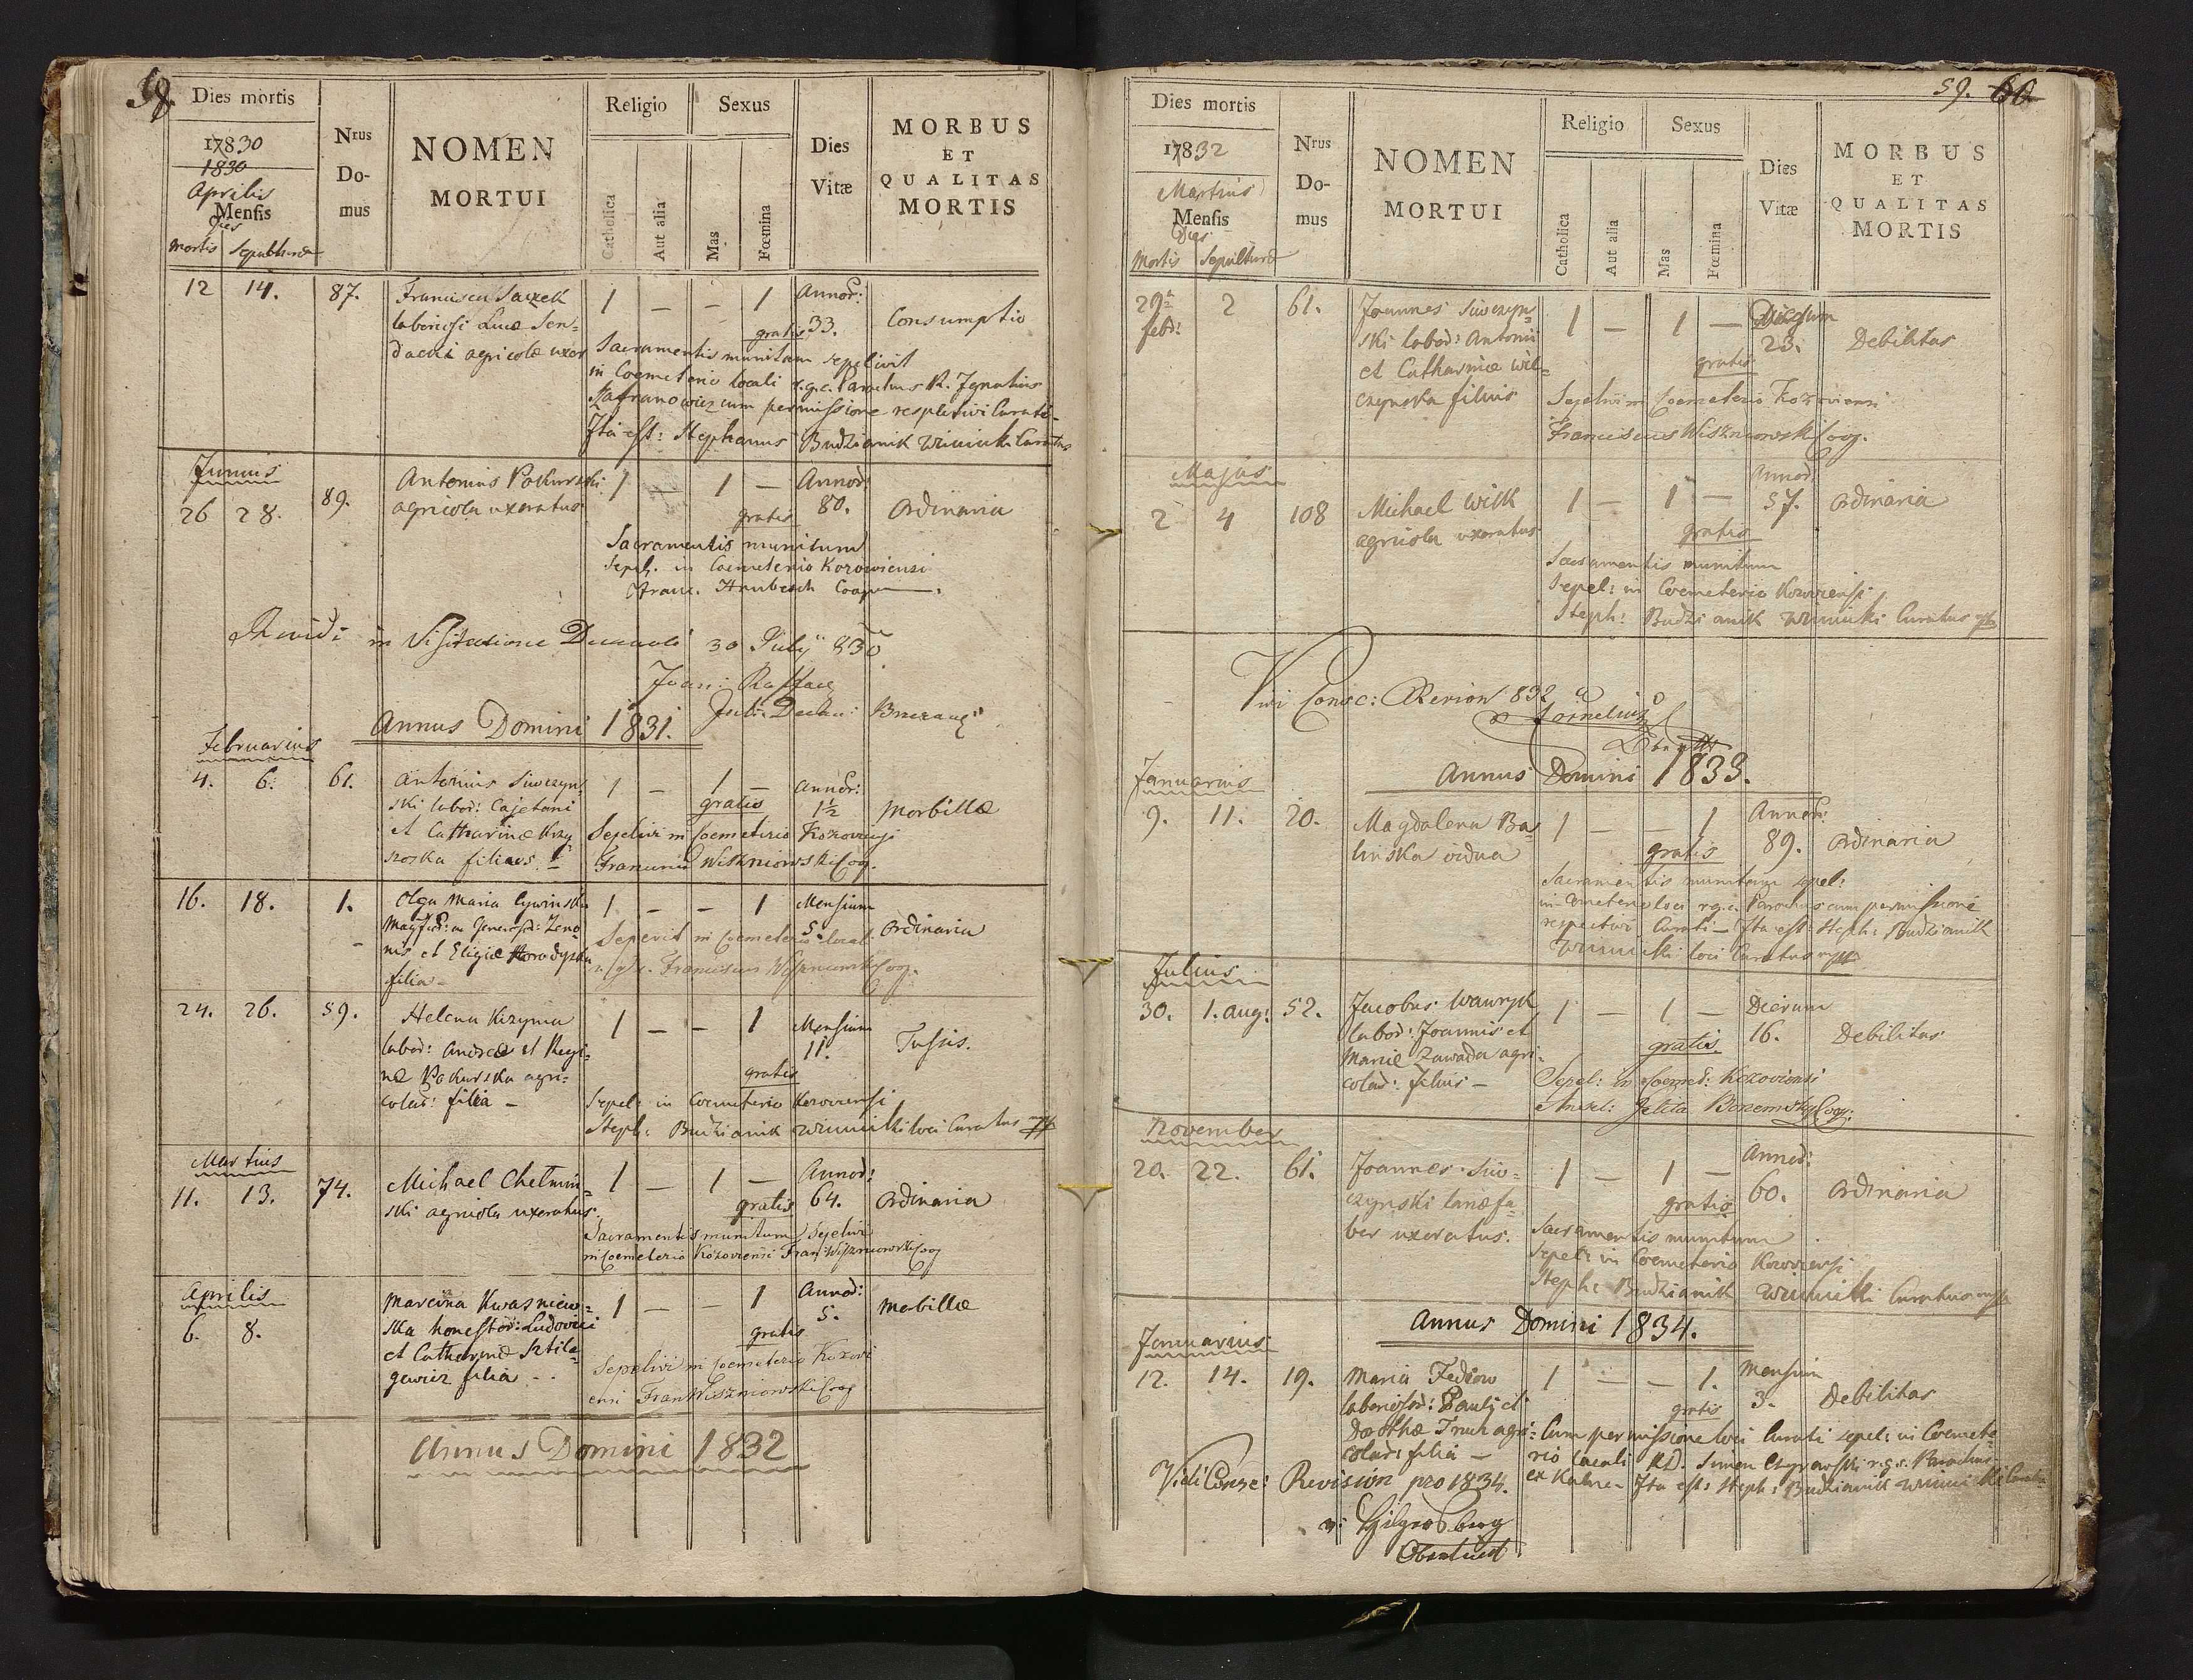 58.
Dies mortis
Nrus Domus
NOMEN MORTUI
Religio
Sexus
Dies Vitæ
MORBUS ET QUALITAS MORTIS
17830
1830
Aprilis
Mensis
Dies
mortis sepulturæ
Catholica
Aut alia
Mas
Fœmina
12 14. 87. Francisca 1 — — 1 Annor: 33. Consumptio
laboriosi Lucæ Sen=
dacki agricolæ uxor
gratis
Sacramentis munitam sepelivit
in Coemeterio locali r.g.c. Parochus R. Ignatius
cum permissione respectivi Curati
Ita est: Stephanus Budzianik Winnicki Curatus
Junius
26 28. 89. Antonius Pokurski 1 — 1 — Annor: 80. Ordinaria
agricola uxoratus
gratis
Sacramentis munitum
Sepel. in Coemeterio Kozowiensi
Franc. Coop
in Visitatione Decanali 30 July 830
Annus Domini 1831.
Februarius
4. 6. 61. Antonius Siwczyn= 1 — 1 — Annor: 1½ Morbillæ
ski labor: Cajetani
et Catharinæ Krzy
szoska filius
gratis
Sepelivi in Coemeterio Kozoviensi
Franciscus Wiszniowski Coop.
16. 18. 1. Olga Maria 1 — — 1 Mensium 5. Ordinaria
Magfcor: ac Generosor: Zeno=
nis et Eligiæ Horodyska
filia —
Sepelivit in Coemeterio locali
r.g.c. Franciscus Wiszniowski Coop.
24. 26. 59. Helena Krzyma 1 — — 1 Mensium 11. Tussis.
labor: Andreæ et Regi=
næ Pokurska agri=
colar: filia —
gratis
Sepel: in Coemeterio Kozoviensi
Steph: Budzianik Winnicki loci Curatus
Martius
11. 13. 74. Michael Chelmin= 1 — 1 — Annor: 64. Ordinaria
ski agricola uxoratus.
gratis
Sacramentis munitum Sepelivi
in Coemeterio Kozoviensi Fran: Wiszniowski Coop
Aprilis
6. 8. Marcina Kwasniew= 1 — — 1 Annor: 5. Mobillæ
ska honestor: Ludovici
et Catharinæ
filia
gratis
Sepelivi in Coemeterio Kozovi
ensi Fran Wiszniowski Coop
Annus Domini 1832
59. 60.
Dies mortis
Nrus Domus
NOMEN MORTUI
Religio
Sexus
Dies Vitæ
MORBUS ET QUALITAS MORTIS
17832
Martius
Mensis
Dies
Mortis Sepulturæ
Catholica
Aut alia
Mas
Fœmina
29a febr: 2 61. Joannes Siwczyn= 1 — 1 — Dierum 23. Debilitas
ski labor: Antonii
et Catharinæ Wil=
czynska filius
gratis
Sepelivi in Coemeterio Kozoviensi
Franciscus Wiszniowski Coop.
Majus
2 4 108 Michael Wilk 1 — 1 — Annor 57. Ordinaria
agricola uxoratus
gratis
Sacramentis munitum
Sepel: in Coemeterio Kozoviensi
Steph: Budzianik Winnicki Curatus
Vidi Consc: Revion 832
Annus Domini 1833.
Januarius
9. 11. 20. Magdalena Ba= 1 — — 1 Annor: 89. Ordinaria
linska vidua
gratis
Sacramentis munitam sepel:
in Cmeterio loci r.g.c. Parochus cum permissione
respectivi Curati — Ita est: Steph: Budzianik
Winnicki loci Curatus
Julius
30. 1. aug: 52. Jacobus Wawryk 1 — 1 — Dierum 16. Debilitas
labor: Joannis et
Mariæ Zawada agri=
colar: filius —
gratis
Sepel: in Coemet: Kozoviensi
Coop:
November
20. 22. 61. Joannes Siw= 1 — 1 — Annor: 60. Ordinaria
czynski lanæfa
ber uxoratus.
gratis
Sacramentis munitum
Sepel: in Coemeterio Kozoviensi
Steph: Budzianik Winnicki Curatus
Annus Domini 1834.
Januarius
12. 14. 19. Maria Fediow 1 — — 1. Mensium 3. Debilitas
laboriosor: Pauli et
Dorothæ agri=
colar: filia —
gratis
Cum permissione loci Curati sepel: in Coemete=
rio locali RD. Simon r.g.c. Parochus
ex Kalne — Ita est: Steph: Budzianik Winnicki Curatus
Vidi Consc: Revision pro 1834.